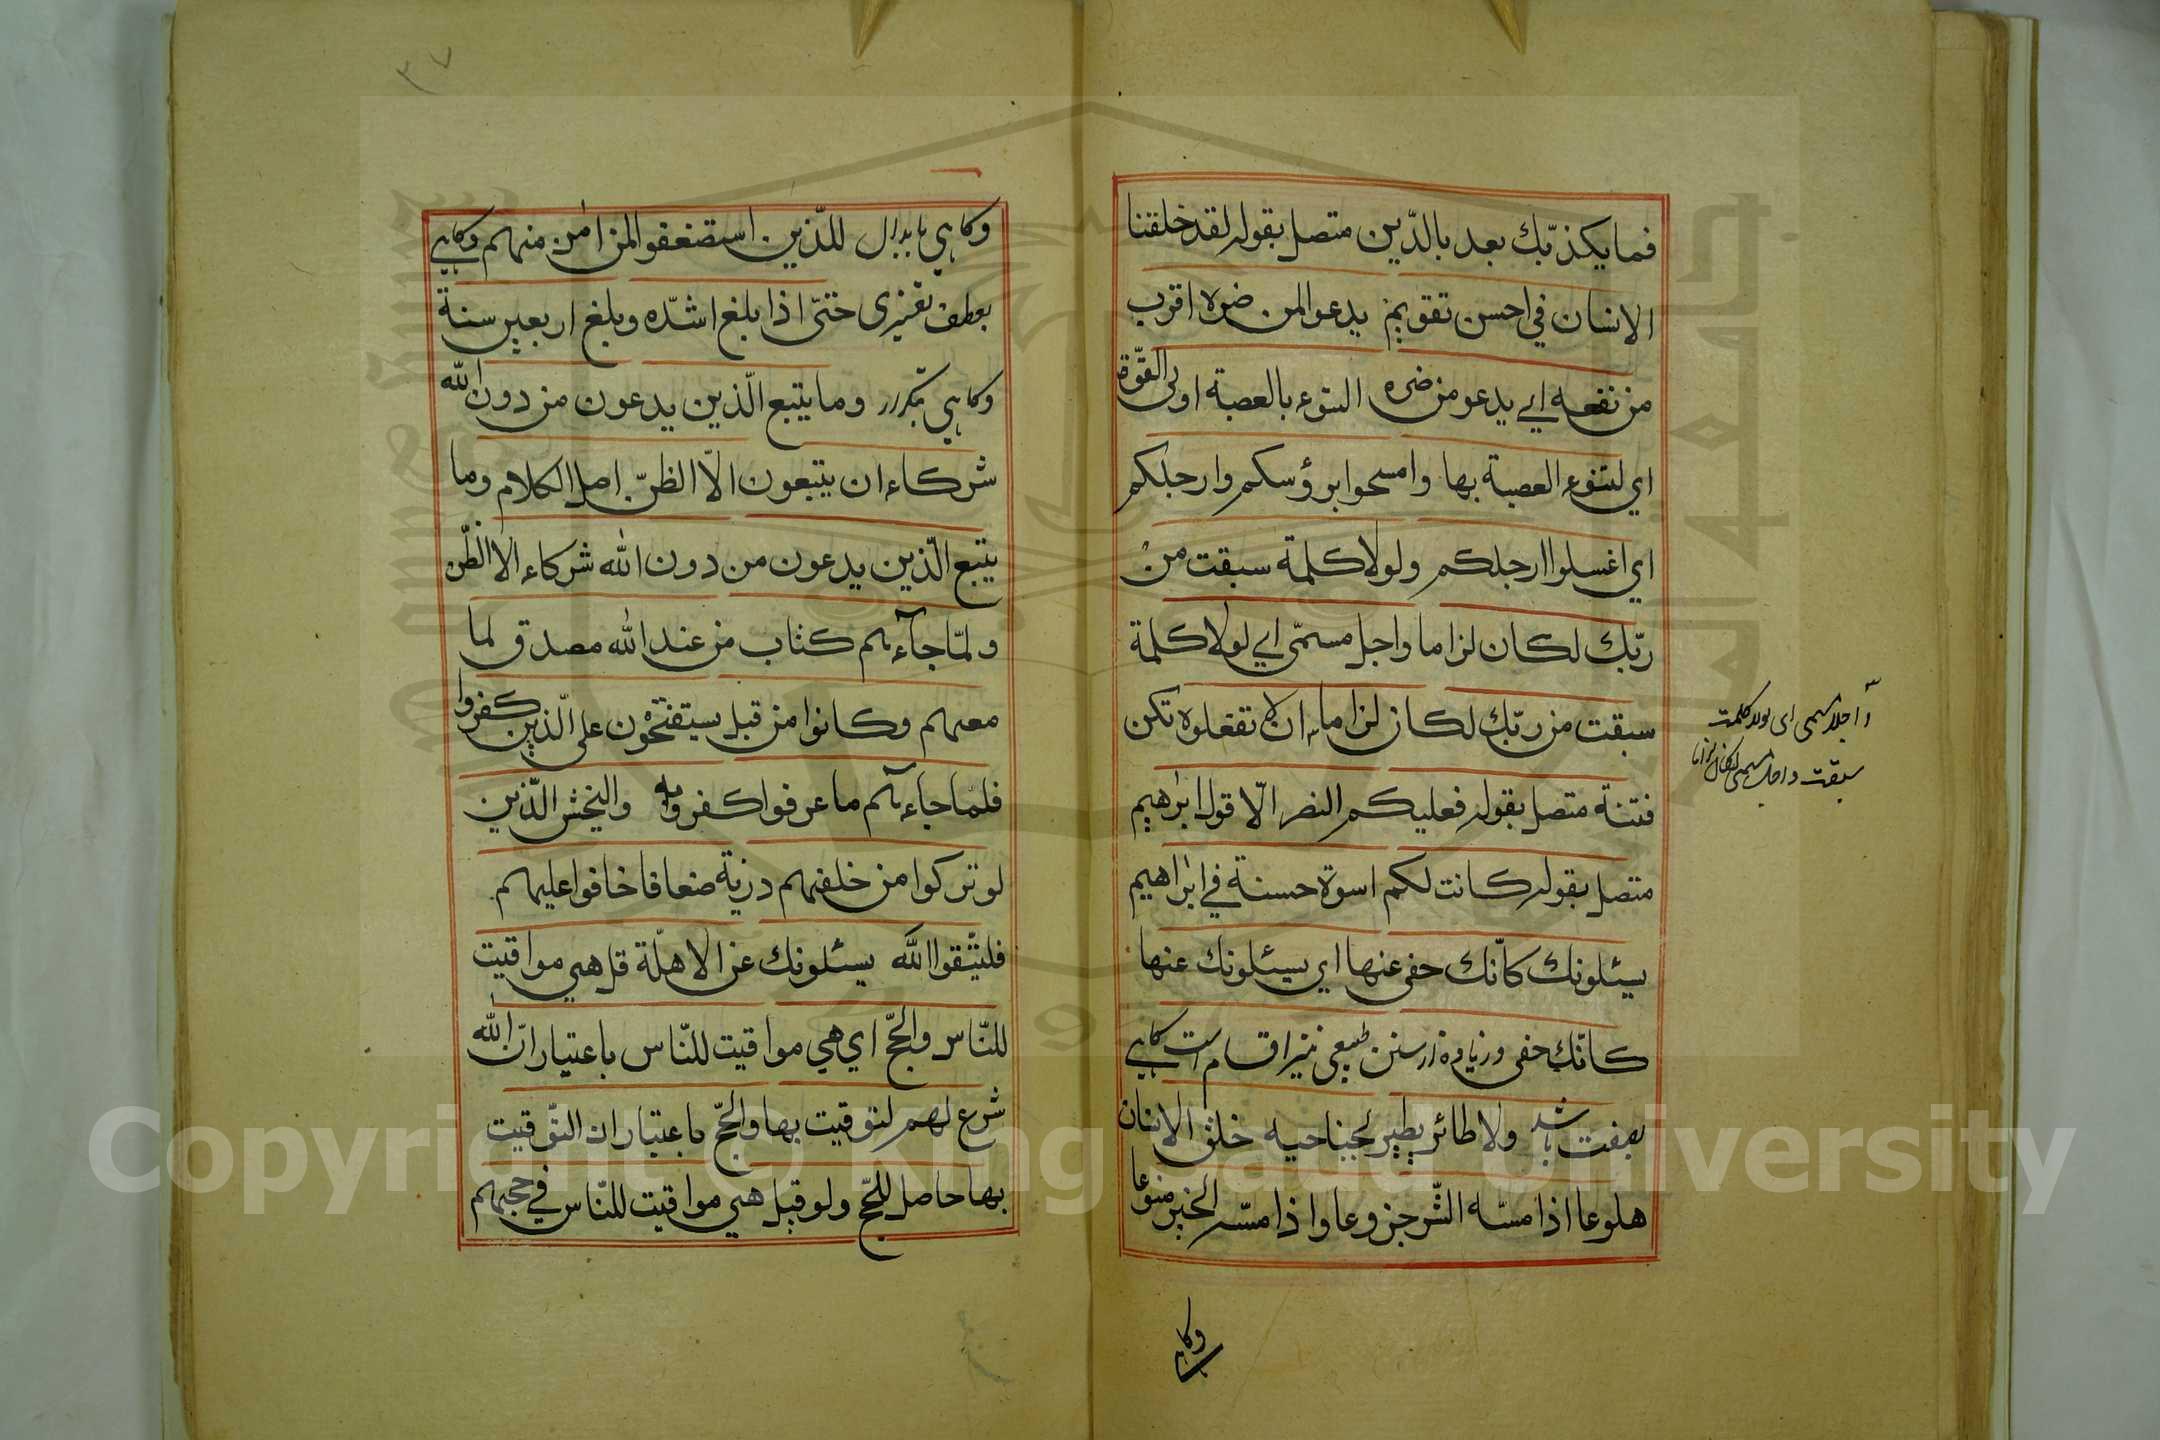 فما يكذّبك بعد بالدّين متصل بقوله لقد خلقنا
الانسان في احسن تقويم يدعوا لمن ضره اقرب
من نفعه اي يدعو من ضره لتنوء بالعصبة اولى القوّة
اي لتنوء العصبة بها وامسحوا برؤسكم وارجلكم
اي اغسلوا ارجلكم ولولا كلمة سبقت من
ربّك لكان لزاما واجل مسمّى اي لولا كلمة
سبقت من ربّك لكان لزاما ان لا تفعلوه تكن
فتنة متصل بقوله فعليكم النصر الّا قول ابراهيم
متصل بقوله كانت لكم اسوة حسنة في ابراهيم
يسئلونك كانّك حفى عنها اي يسئلونك عنها
كانّك حفى و زياده از سنن طبيعى نيز اقسام است كاهى
بصفت باشد ولا طائر يطير بجناحيه خلق الانسان
هلوعا اذا مسّه الشّر جزوعا واذا مسّه الخير منوعا
وكاهى
واجل مسمى اى لولا كلمت
سبقت واجل مسمى لكان لزاما
٣٧
وكاهي بابدال للّذين استضعفوا لمن امن منهم وكاهي
بعطف تفسيرى حتّى اذا بلغ اشدّه وبلغ اربعين سنة
وكاهي بتكرر وما يتبع الّذين يدعون من دون الله
شركاء ان يتبعون الّا الظنّ اصل الكلام وما
يتبع الّذين يدعون من دون الله شركاء الا الظّن
ولمّا جاءهم كتاب من عند الله مصدق لما
معهم وكانوا من قبل يستفتحون على الّذين كفروا
فلمّا جاءهم ما عرفوا كفروا به وليخش الّذين
لو تركوا من خلفهم ذرية ضعافا خافوا عليهم
فليتّقوا الله يسئلونك عن الاهلّة قل هي مواقيت
للنّاس والحجّ اي هي مواقيت للنّاس باعتبار انّ الله
شرع لهم لتوقيت بها والحجّ باعتبار ان التّوقيت
بها حاصل للحجّ ولو قيل هي مواقيت للنّاس في حجهم
Copyright © King Saud University